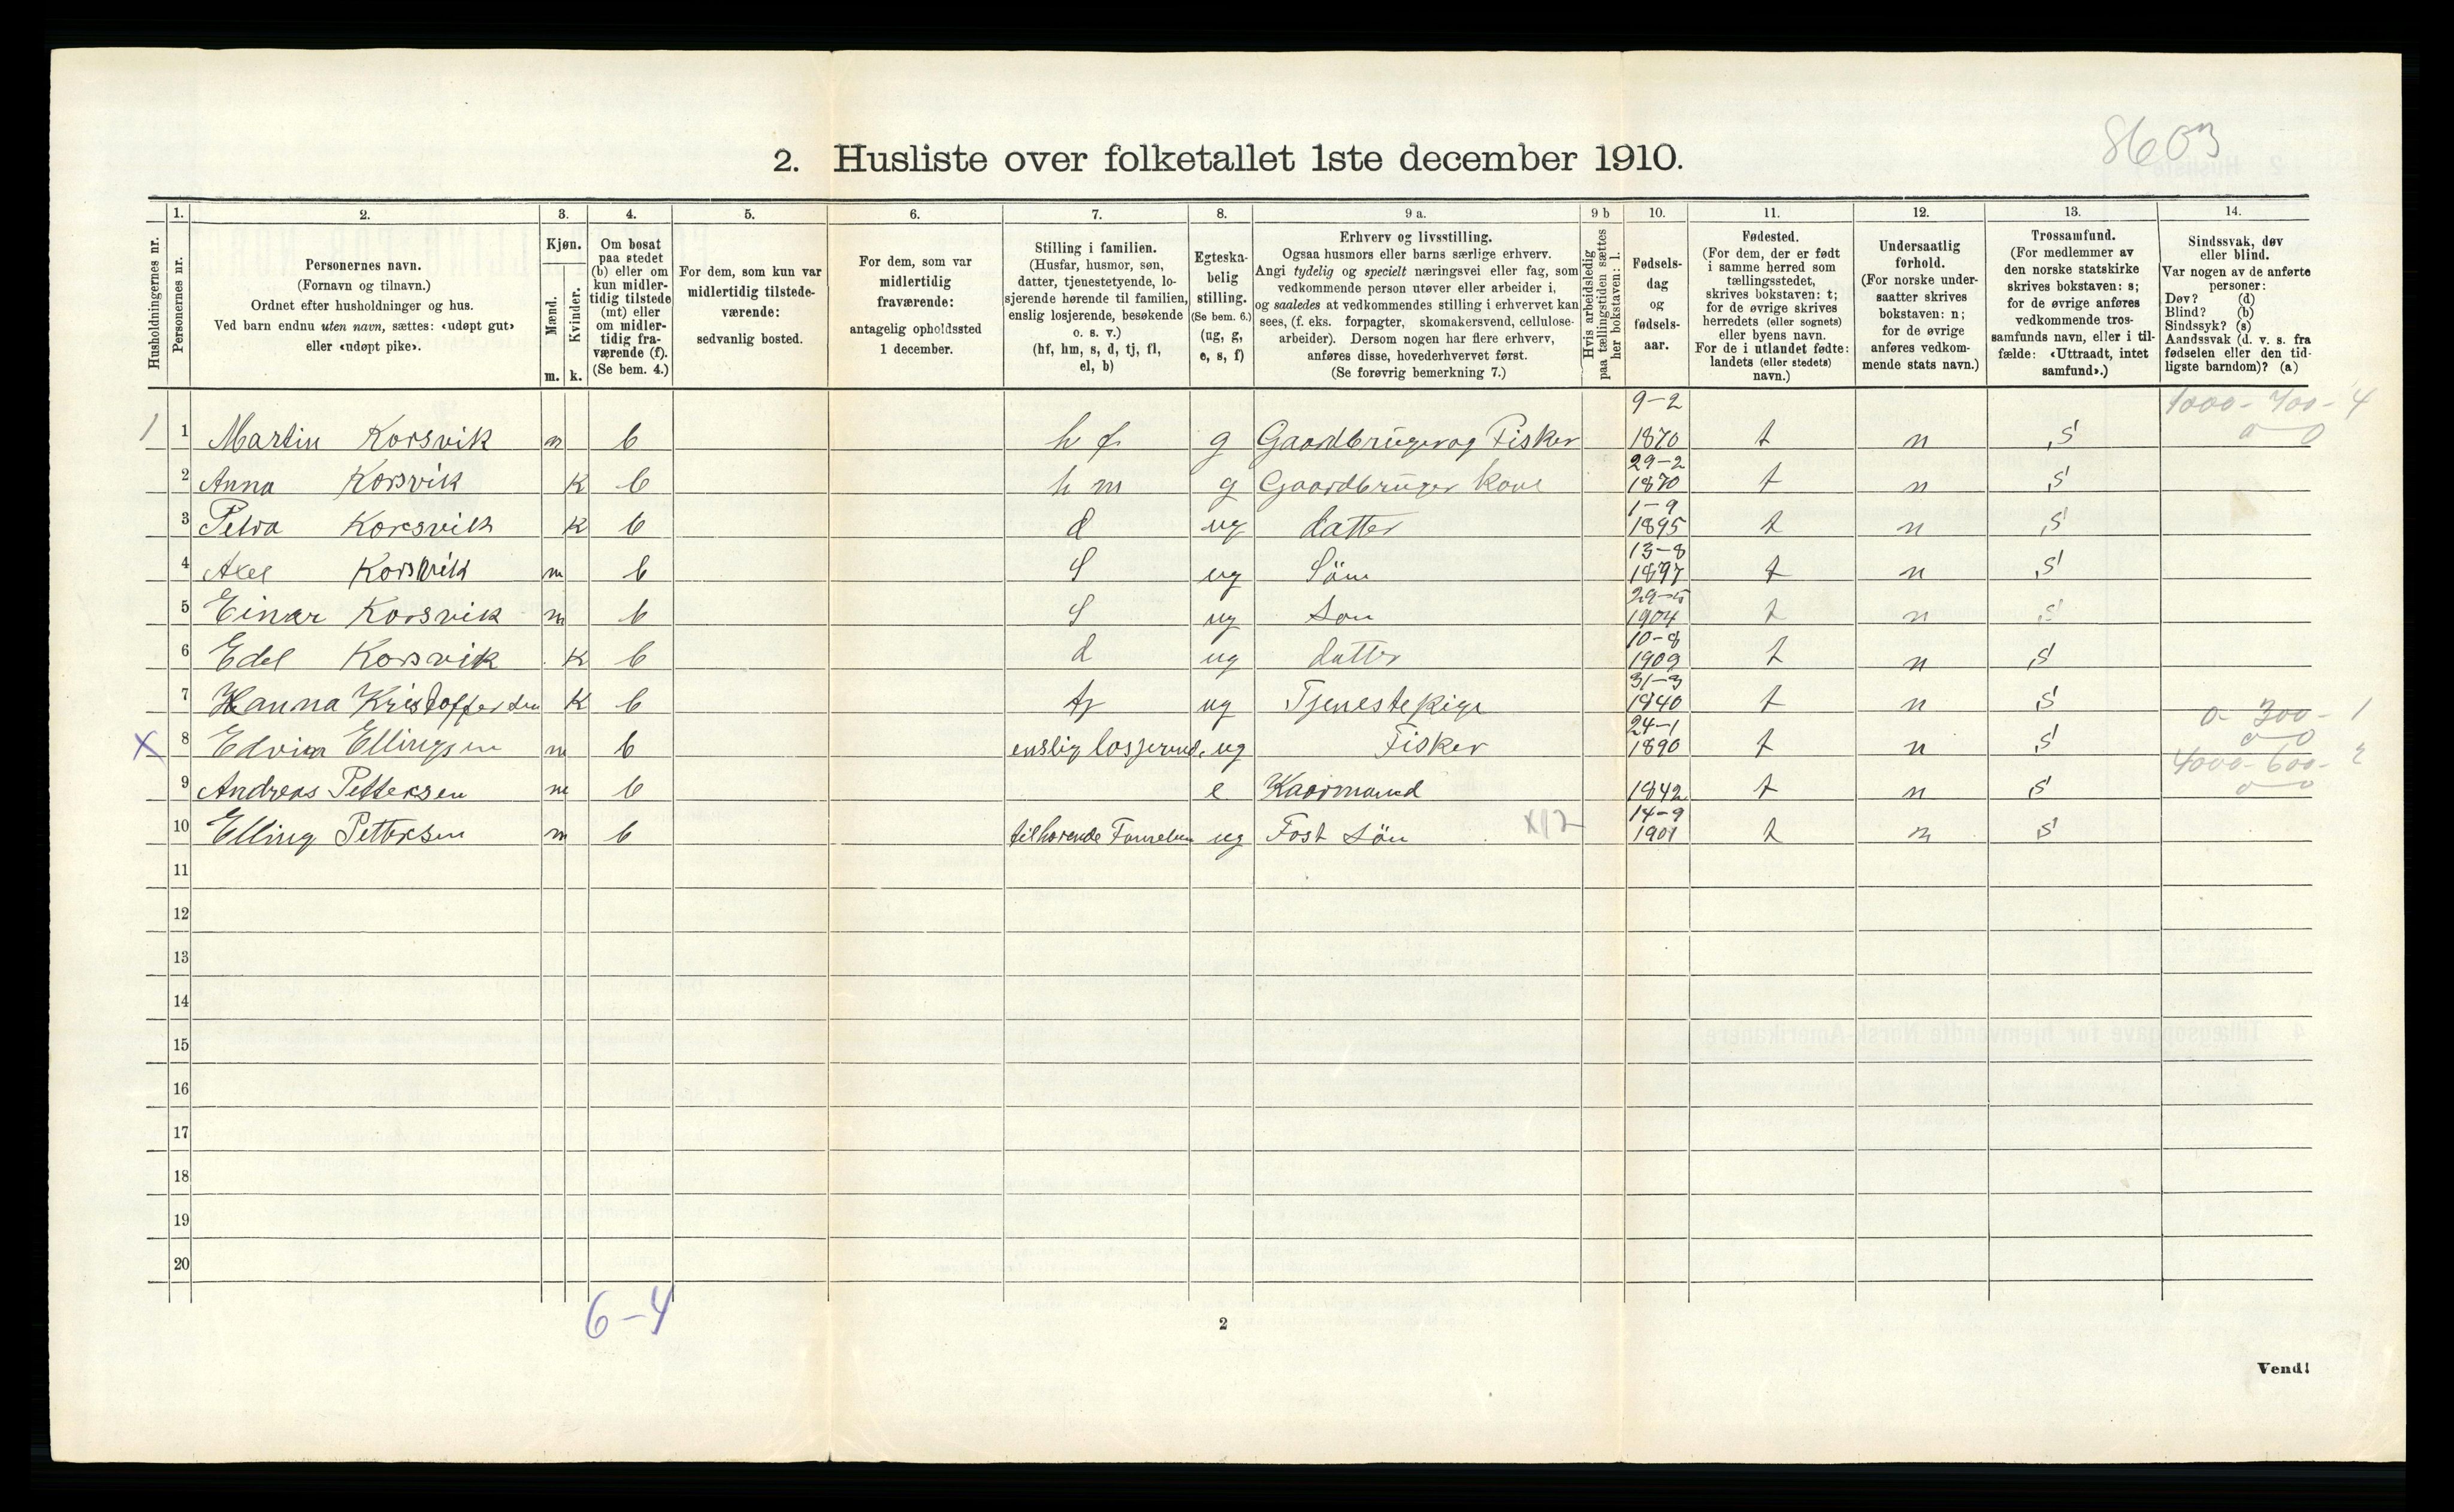 8603
2. Husliste over folketallet 1ste december 1910.
Husholdningernes nr.
1.
Personernes nr.
2.
Personernes navn.
(Fornavn og tilnavn.)
Ordnet efter husholdninger og hus.
Ved barn endnu uten navn, sættes: «udøpt gut»
eller «udøpt pike».
3.
Kjøn.
Mænd.
Kvinder.
m. k.
4.
Om bosat
paa stedet
(b) eller om
kun midler-
tidig tilstede
(mt) eller
om midler-
tidig fra-
værende (f).
(Se bem. 4.)
5.
For dem, som kun var
midlertidig tilstede-
værende:
sedvanlig bosted.
6.
For dem, som var
midlertidig
fraværende:
antagelig opholdssted
1 december.
7.
Stilling i familien.
(Husfar, husmor, søn,
datter, tjenestetyende, lo-
sjerende hørende til familien,
enslig losjerende, besøkende
o. s. v.)
(hf, hm, s, d, tj, fl,
el, b)
8.
Egteska-
belig
stilling.
(Se bem. 6.)
(ug, g,
e, s, f)
9 a.
Erhverv og livsstilling.
Ogsaa husmors eller barns særlige erhverv.
Angi tydelig og specielt næringsvei eller fag, som
vedkommende person utøver eller arbeider i,
og saaledes at vedkommendes stilling i erhvervet kan
sees, (f. eks. forpagter, skomakersvend, cellulose-
arbeider). Dersom nogen har flere erhverv,
anføres disse, hovederhvervet først.
(Se forøvrig bemerkning 7.)
9 b
Hvis arbeidsledig
paa tællingstiden sættes
her bokstaven: l.
10.
Fødsels-
dag
og
fødsels-
aar.
11.
Fødested.
(For dem, der er født
i samme herred som
tællingsstedet,
skrives bokstaven: t;
for de øvrige skrives
herredets (eller sognets)
eller byens navn.
For de i utlandet fødte:
landets (eller stedets)
navn.)
12.
Undersaatlig
forhold.
(For norske under-
saatter skrives
bokstaven: n;
for de øvrige
anføres vedkom-
mende stats navn.)
13.
Trossamfund.
(For medlemmer av
den norske statskirke
skrives bokstaven: s;
for de øvrige anføres
vedkommende tros-
samfunds navn, eller i til-
fælde: «Uttraadt, intet
samfund».)
14.
Sindssvak, døv
eller blind.
Var nogen av de anførte
personer:
Døv? (d)
Blind? (b)
Sindssyk? (s)
Aandssvak (d. v. s. fra
fødselen eller den tid-
ligste barndom)? (a)
1 1 Martin Korsvik m b h f g Gaardbruger og Fisker 9-2 1870 t n s 1000-700-4 0 0
2 Anna Korsvik k b h m g Gaardbruger kone 29-2 1870 t n s
3 Petra Korsvik k b d ug datter 1-9 1895 t n s
4 Axel Korsvik m b S ug Sön 13-8 1897 t n s
5 Einar Korsvik m b S ug Son 29-5 1904 t n s
6 Edel Korsvik k b d ug datter 10-8 1909 t n s
7 Hanna Kristoffersen k b tj ug Tjenestepige 31-3 1840 t n s
X 8 Edvin Ellingsen m b enslig losjerend. ug Fisker 24-1 1890 t n s 0-300-1 0 0
9 Andreas Pettersen m b e Kaarmand 1842 t n s 4000-600-2 0 0
10 Elling Pettersen m b tilhorende ug Fost Sön X12 14-9 1901 t n s
11
12
13
14
15
16
17
18
19
20
6-4
2
Vend!